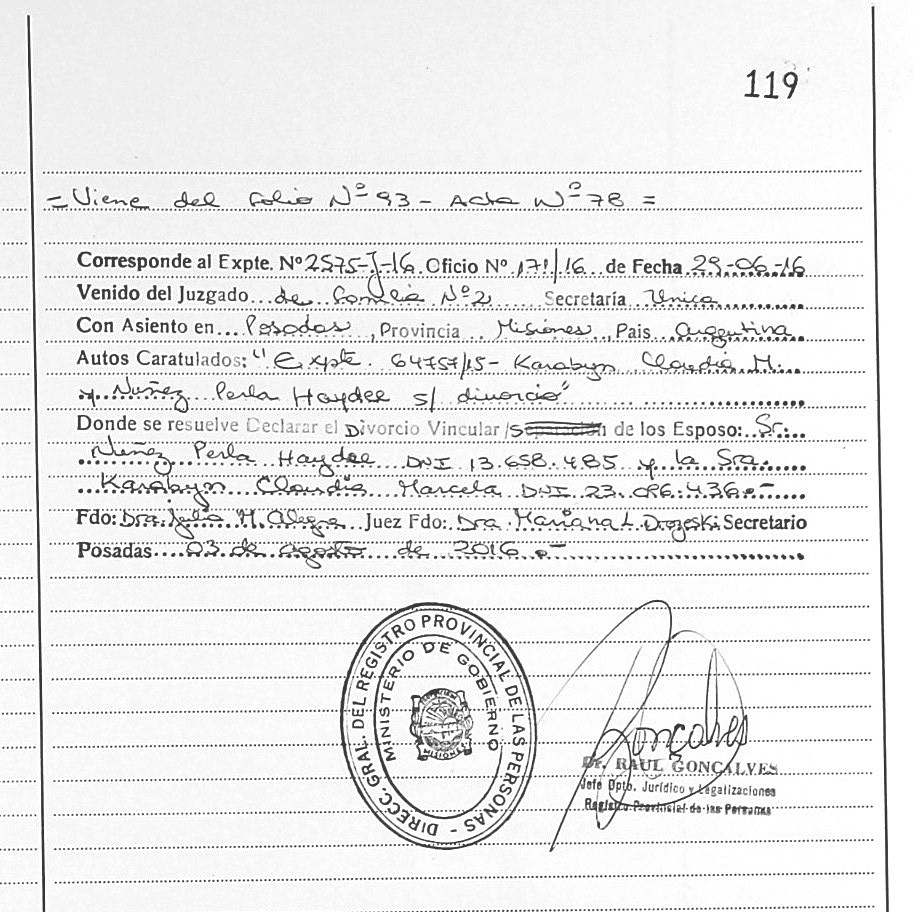 119
= Viene del folio Nº 93 - Acta Nº 78 =
Corresponde al Expte. Nº 2575-J-16 Oficio Nº 171/16 de Fecha 29-06-16
Venido del Juzgado de Familia Nº 2 Secretaría Unica
Con Asiento en Posadas, Provincia Misiones, Pais Argentina
Autos Caratulados: "Expte. 64757/15 - Karabyn Claudia M.
y Nuñez Perla Haydee s/ divorcio"
Donde se resuelve Declarar el Divorcio Vincular/Separación de los Esposo: Sr.
Nuñez Perla Haydee DNI 13.658.485 y la Sra.
Karabyn Claudia Marcela DNI 23.096.436.-
Fdo: Dra. Julia M. Alegre Juez Fdo: Dra Mariana L. Drozeski Secretario
Posadas 03 de agosto de 2016.-
DIRECC. GRAL. DEL REGISTRO PROVINCIAL DE LAS PERSONAS -
MINISTERIO DE GOBIERNO
MISIONES
Gonçalves
Dr. RAUL GONÇALVES
Jefe Dpto. Jurídico y Legalizaciones
Registro Provincial de las Personas